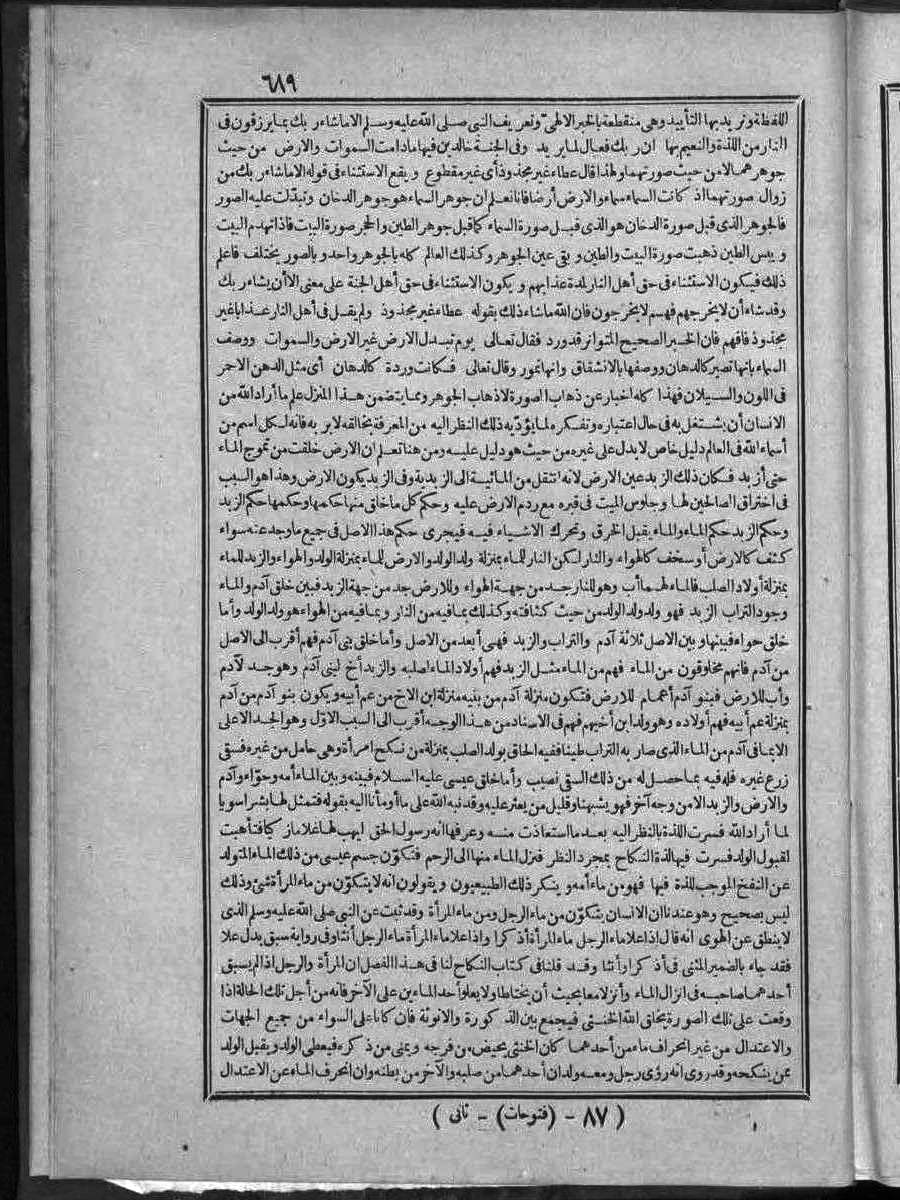 ٦٨٩
اللفظة ونريد بها التأبيد وهي منقطعة بالخبر الالهى وتعريف النبى صلى الله عليه وسلم الا ماشاء ربك بما يرزقون فى
النار من اللذة والنعيم بها ان ربك فعال لما يريد وفى الجنة خالدين فيها مادامت السموات والارض من حيث
جوهرهما لا من حيث صورتهما ولهذا قال عطاء غير مجذوذ أى غير مقطوع ويقع الاستثناء فى قوله الا ماشاء ربك من
زوال صورتهما اذ كانت السماء سماء والارض أرضا فانا نعلم ان جوهر السماء هو جوهر الدخان وتبدلت عليه الصور
فالجوهر الذى قبل صورة الدخان هو الذى قبل صورة السماء كما قبل جوهر الطين والحجر صورة البيت فاذا تهدم البيت
ويبس الطين ذهبت صورة البيت والطين وبقى عين الجوهر وكذلك العالم كله بالجوهر واحد وبالصور يختلف فاعلم
ذلك فيكون الاستثناء فى حق أهل النار لمدة عذابهم ويكون الاستثناء فى حق أهل الجنة على معنى الا أن يشاء ربك
وقد شاء أن لا يخرجهم فهم لا يخرجون فان الله ماشاء ذلك بقوله عطاء غير مجذوذ ولم يقل فى أهل النار عذابا غير
مجذوذ فافهم فان الخبر الصحيح المتواتر قد ورد فقال تعالى يوم تبدل الارض غير الارض والسموات ووصف
السماء بانها تصير كالدهان ووصفها بالانشقاق وانها تمور وقال تعالى فكانت وردة كالدهان أى مثل الدهن الاحمر
فى اللون والسيلان فهذا كله اخبار عن ذهاب الصورة لا ذهاب الجوهر ومما يتضمن هذا المنزل علم ما أراد الله من
الانسان أن يشتغل به فى حال اعتباره وتفكره لما يؤديه ذلك النظر اليه من المعرفة بخالقه لا بربه فانه لكل اسم من
أسماء الله فى العالم دليل خاص لا يدل على غيره من حيث هو دليل عليه ومن هنا تعلم ان الارض خلقت من تموج الماء
حتى أزبد فكان ذلك الزبد عين الارض لانه انتقل من المائية الى الزبدية وفى الزبد يكون الارض وهذا هو السبب
فى اختراق الصالحين لها وجلوس الميت فى قبره مع ردم الارض عليه وحكم كل ما خلق منها حكمها وحكمها حكم الزبد
وحكم الزبد حكم الماء والماء يقبل الخرق وتحرك الاشياء فيه فيجرى حكم هذا الاصل فى جميع ما وجد عنه سواء
كثف كالارض أو سخف كالهواء والنار لكن النار للماء بمنزلة ولد الولد والارض للماء بمنزلة الولد والهواء والزبد للماء
بمنزلة أولاد الصلب فالماء لهما أب وهو للنار جد من جهة الهواء وللارض جد من جهة الزبد فبين خلق آدم والماء
وجود التراب الزبد فهو ولد ولد الولد من حيث كثافته وكذلك بما فيه من النار وبما فيه من الهواء هو ولد الولد وأما
خلق حواء فبينها وبين الاصل ثلاثة آدم والتراب والزبد فهى أبعد من الاصل وأما خلق بنى آدم فهم أقرب الى الاصل
من آدم فانهم مخلوقون من الماء فهم من الماء مثل الزبد فهم أولاد الماء لصلبه والزبد أخ لبنى آدم وهو جد لآدم
وأب للارض فبنو آدم أعمام للارض فتكون منزلة آدم من بنيه منزلة ابن الاخ من عم أبيه ويكون بنو آدم من آدم
بمنزلة عم أبيه فهم أولاده وهو ولد ابن أخيهم فهم فى الاسناد من هذا الوجه أقرب الى السبب الاول وهو الجد الاعلى
الا بما فى آدم من الماء الذى صار به التراب طينا ففيه الحاق بولد الصلب بمنزلة من نكح امرأة وهى حامل من غيره فسقى
زرع غيره فله فيه بما حصل له من ذلك السقى نصيب وأما خلق عيسى عليه السلام فبينه وبين الماء أمه وحواء وآدم
والارض والزبد الا من وجه آخر فهو يشبهنا وقليل من يعثر عليه وقد نبه الله على ما أومأنا اليه بقوله فتمثل لها بشرا سويا
لما أراد الله فسرت اللذة بالنظر اليه بعد ما استعاذت منه وعرفها انه رسول الحق ليهب لها غلاما زكيا فتأهبت
لقبول الولد فسرت فيها لذة النكاح بمجرد النظر فنزل الماء منها الى الرحم فتكون جسم عيسى من ذلك الماء المتولد
عن النفخ الموجب للذة فيها فهو من ماء أمه وينكر ذلك الطبيعيون ويقولون انه لا يتكون من ماء المرأة شئ وذلك
ليس بصحيح وهو عندنا ان الانسان يتكون من ماء الرجل ومن ماء المرأة وقد ثبت عن النبى صلى الله عليه وسلم الذى
لا ينطق عن الهوى انه قال اذا علا ماء الرجل ماء المرأة أذكرا واذا علا ماء المرأة ماء الرجل أنثا وفى رواية سبق بدل علا
فقد جاء بالضمير المثنى فى أذكرا وأنثا وقد قلنا فى كتاب النكاح لنا فى هذا الفصل ان المرأة والرجل اذا لم يسبق
أحدهما صاحبه فى انزال الماء وأنزلا معا بحيث أن يختلطا ولا يعلو أحد الماءين على الآخر فانه من أجل تلك الحالة اذا
وقعت على تلك الصورة يخلق الله الخنثى فيجمع بين الذكورة والانوثة فان كانا على السواء من جميع الجهات
والاعتدال من غير انحراف ماء من أحدهما كان الخنثى يحيض من فرجه ويمنى من ذكره فيعطى الولد ويقبل الولد
ممن ينكحه وقد روى انه رؤى رجل ومعه ولدان أحدهما من صلبه والآخر من بطنه وان انحرف الماء عن الاعتدال
( ٨٧ - (فتوحات) - ثانى )